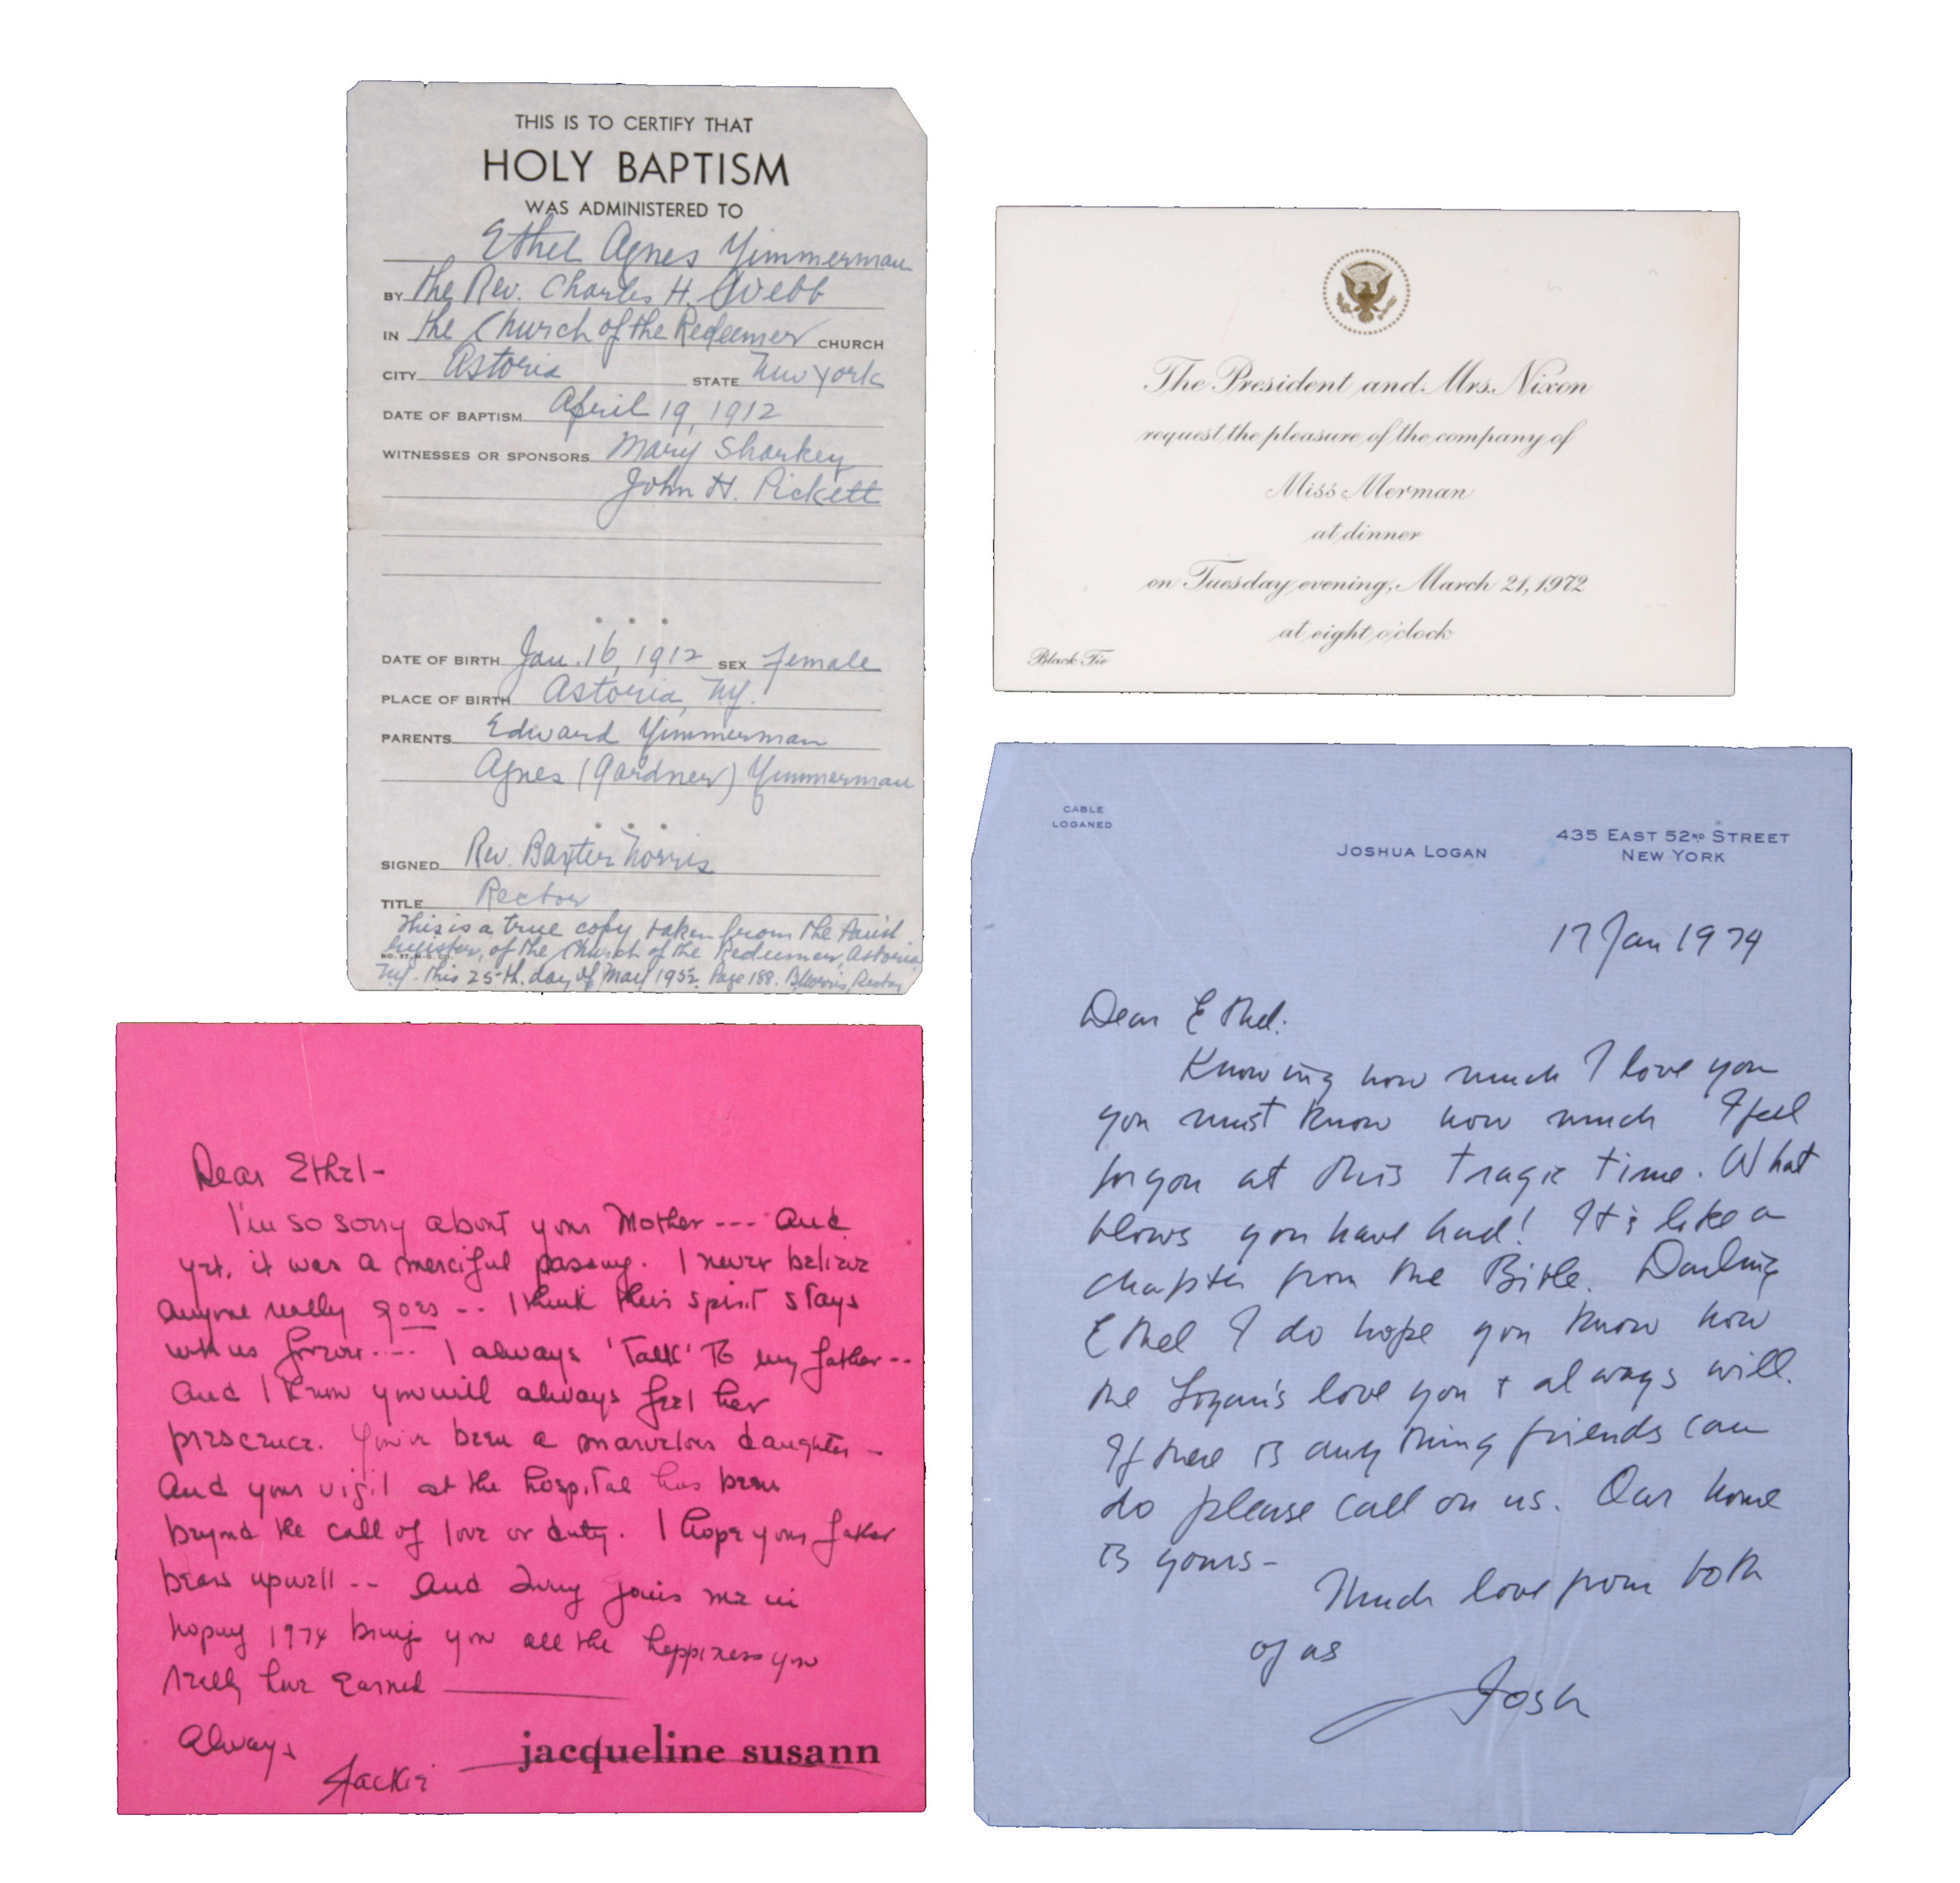 THIS IS TO CERTIFY THAT
HOLY BAPTISM
WAS ADMINISTERED TO
Ethel Agnes Zimmerman
BY the Rev. Charles H. Webb
IN the Church of the Redeemer CHURCH
CITY Astoria STATE New York
DATE OF BAPTISM April 19, 1912
WITNESSES OR SPONSORS Mary Sharkey
John H. Pickett
DATE OF BIRTH Jan. 16, 1912 SEX female
PLACE OF BIRTH Astoria, N.Y.
PARENTS Edward Zimmerman
Agnes (Gardner) Zimmerman
SIGNED Rev. Baxter Norris
TITLE Rector
This is a true copy taken from the Parish
Register, of the Church of the Redeemer, Astoria
N.Y. this 25th. day of May 1952. Page 188. B Norris, Rector
The President and Mrs. Nixon
request the pleasure of the company of
Miss Merman
at dinner
on Tuesday evening, March 21, 1972
at eight o'clock
Black Tie
Dear Ethel -
I'm so sorry about your Mother --- And
yet, it was a merciful passing. I never believe
anyone really goes -- I think their spirit stays
with us forever ---- I always 'talk' to my father --
And I know you will always feel her
presence. You've been a marvelous daughter -
And your vigil at the hospital has been
beyond the call of love or duty. I hope your father
bears up well -- And Irving joins me in
hoping 1974 brings you all the happiness you
really have earned
Always
Jackie
jacqueline susann
CABLE
LOGANED
JOSHUA LOGAN
435 EAST 52ND STREET
NEW YORK
17 Jan 1974
Dear Ethel:
Knowing how much I love you
you must know how much I feel
for you at this tragic time. What
blows you have had! It's like a
chapter from the Bible. Darling
Ethel I do hope you know how
the Logan's love you + always will.
If there is anything friends can
do please call on us. Our home
is yours -
Much love from both
of us
Josh